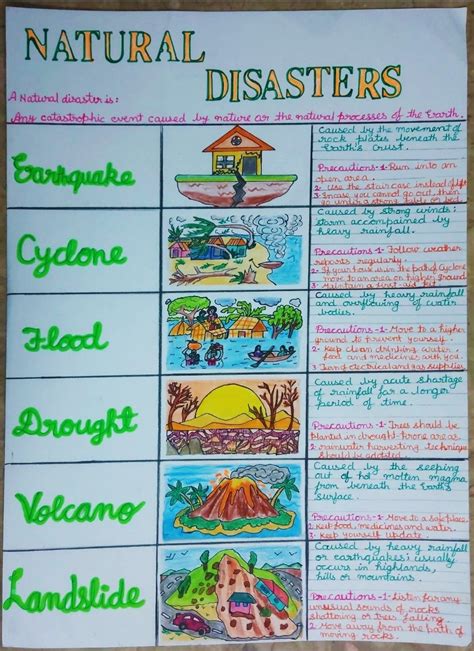 NATURAL
DISASTERS
A Natural disaster is:
Any catastrophic event caused by nature or the natural processes of the Earth.
Earthquake
Caused by the movement of
rock plates beneath the
Earth's crust.
Precautions-1- Run into an
open area.
2- Use the staircase instead of lift
3- Incase you cannot go out, then
go under a strong table or bed.
Cyclone
Caused by strong winds;
storm accompained by
heavy rainfall.
Precautions-1- Follow weather
reports regularly.
2- If your house is in the path of Cyclone
move to an area on higher ground
3- Maintain a first-aid kit
Flood
Caused by heavy rainfall
and overflowing of water
bodies.
Precautions-1- Move to a higher
ground to prevent yourself.
2- Keep clean drinking water,
food and medicines with you.
3- Turn off electrical and gas supplies
Drought
Caused by acute shortage
of rainfall for a longer
period of time.
Precautions-1- Trees should be
planted in drought-prone areas.
2- rainwater harvesting technique
should be adopted
Volcano
Caused by the seeping
out of hot molten magma
from beneath the Earth's
surface.
Precautions-1- Move to a safe place.
2- Keep food, medicines and water.
3- Keep yourself update.
Landslide
Caused by heavy rainfall
or earthquakes; usually
occurs in highlands,
hills or mountains.
Precautions-1- Listen for any
unusual sounds of rocks
shattering or trees falling.
2- Move away from the path of
moving rocks.